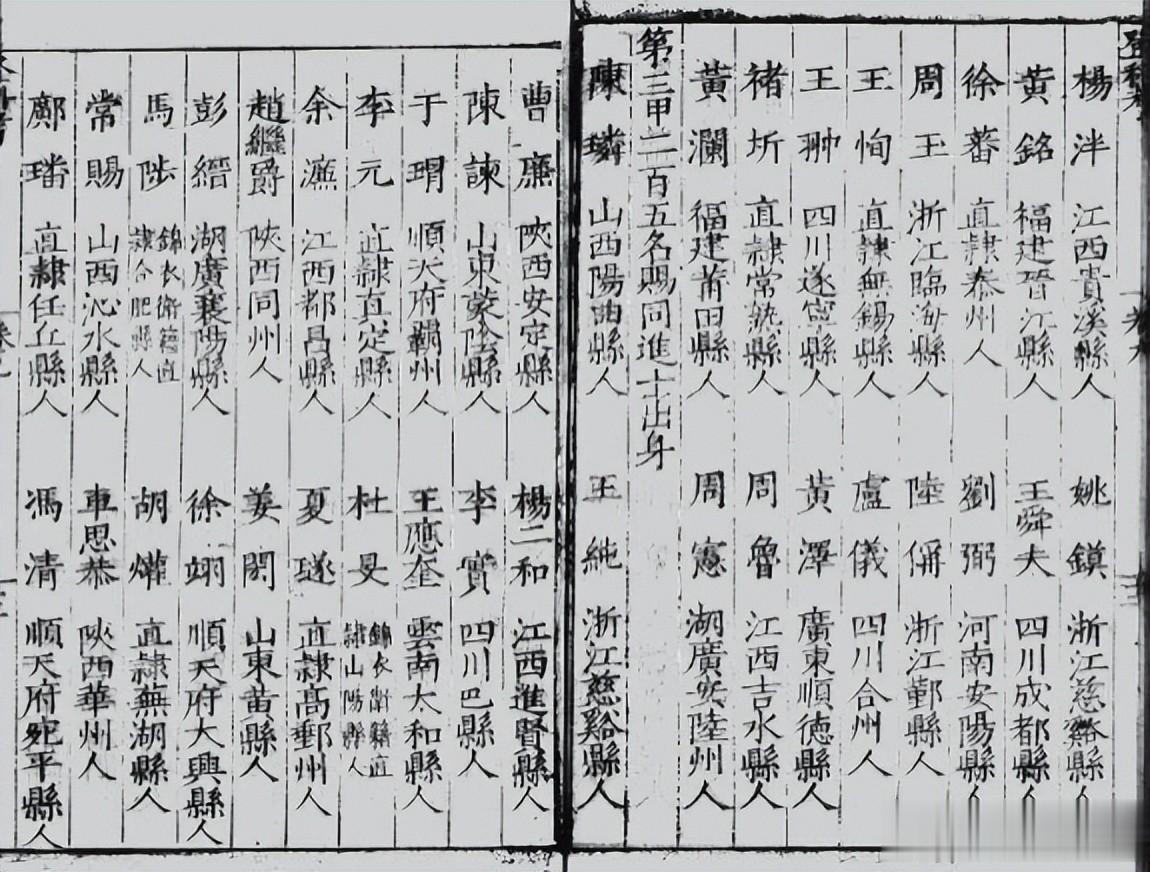 楊泮 江西貴溪縣人 姚鎮 浙江慈谿縣人
黃銘 福建晉江縣人 王舜夫 四川成都縣人
徐蕃 直隸泰州人 劉弼 河南安陽縣人
周玉 浙江臨海縣人 陸偁 浙江鄞縣人
王恂 直隸無錫縣人 盧儀 四川合州人
王翀 四川遂寧縣人 黃澤 廣東順德縣人
禇圻 直隸常熟縣人 周魯 江西吉水縣人
黃瀾 福建莆田縣人 周憲 湖廣安陸州人
第三甲二百五名賜同進士出身
陳璘 山西陽曲縣人 王純 浙江慈谿縣人
曹廉 陝西安定縣人 楊二和 江西進賢縣人
陳諫 山東蒙陰縣人 李實 四川巴縣人
于瑁 順天府霸州人 王應奎 雲南太和縣人
李元 直隸真定縣人 杜旻 錦衣衛籍直隸山陽縣人
余濂 江西都昌縣人 夏璲 直隸高郵州人
趙繼爵 陝西同州人 姜閎 山東黃縣人
彭縉 湖廣襄陽縣人 徐翊 順天府大興縣人
馬陟 錦衣衛籍直隸合肥縣人 胡爟 直隸蕪湖縣人
常賜 山西沁水縣人 車思恭 陝西華州人
鄺璠 直隸任丘縣人 馮清 順天府宛平縣人